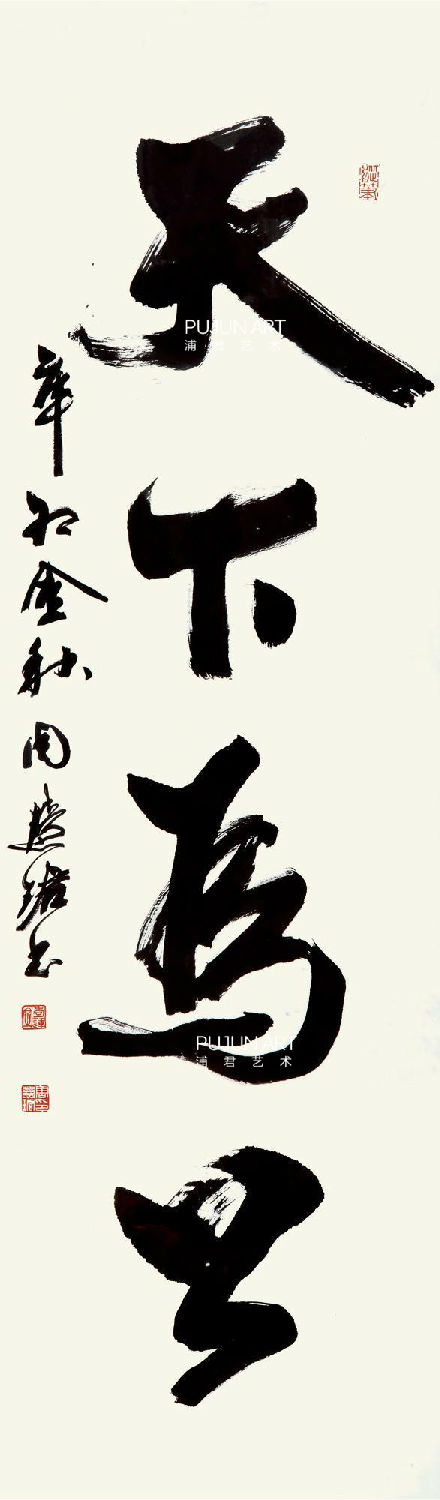 天下為公
辛卯金秋周慧珺书
PUJUN ART
浦君艺术
PUJUN ART
浦君艺术